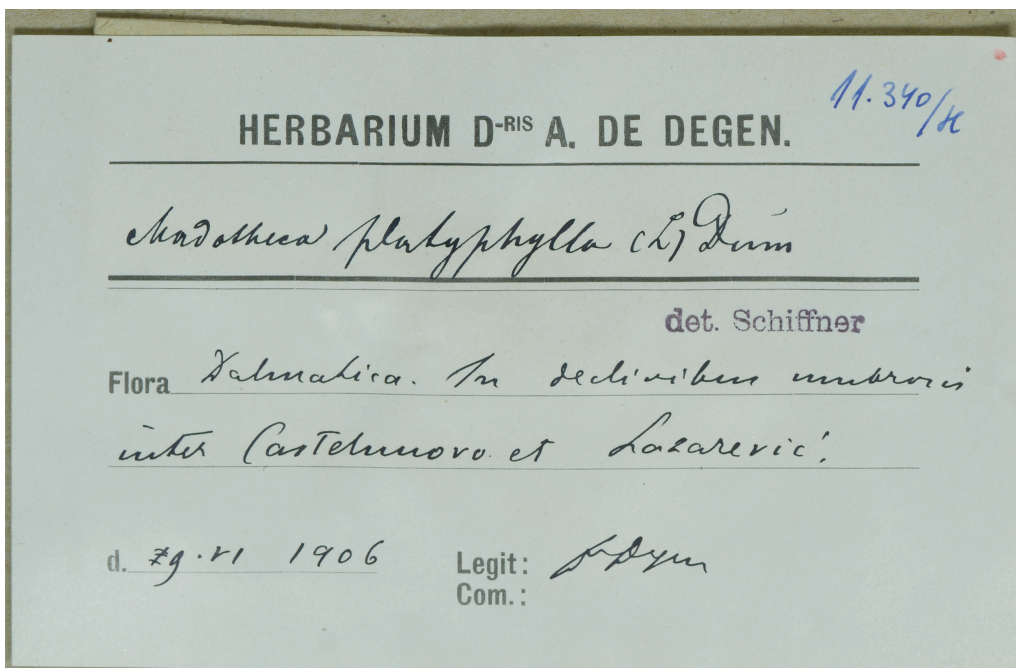 11.340/H
HERBARIUM D-RIS A. DE DEGEN.
Madotheca platyphylla (L) Dum
det. Schiffner
Flora Dalmatica. In declivibus umbrosis
inter Castelnuovo et Lazarević.
d. 29. VI 1906 Legit: Degen
Com.: